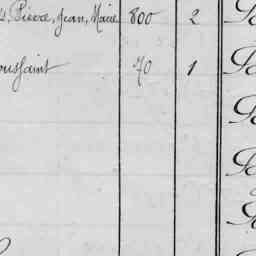 Pierre, Jean, Marie 800 2
oussaint 70 1